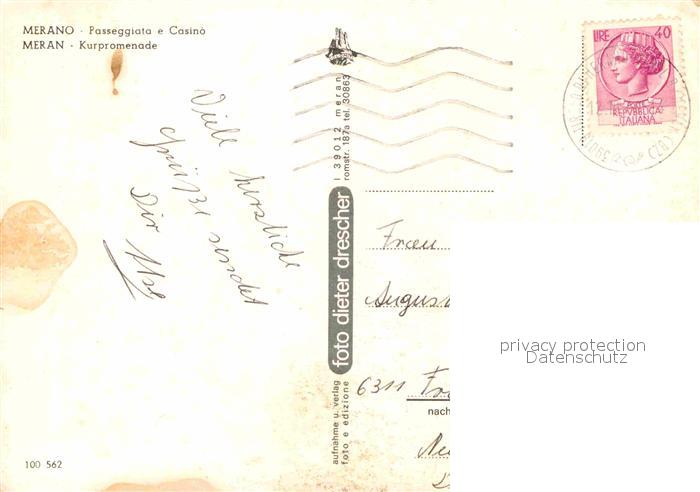 MERANO · Passeggiata e Casinò
MERAN · Kurpromenade
Viele herzliche
Grüße sendet
Dir
100 562
aufnahme u. verlag
foto e edizione
foto dieter drescher
I 39012 meran
romstr. 187a tel. 30863
LIRE 40
REPUBBLICA
ITALIANA
Frau
August
6311
nach
privacy protection
Datenschutz